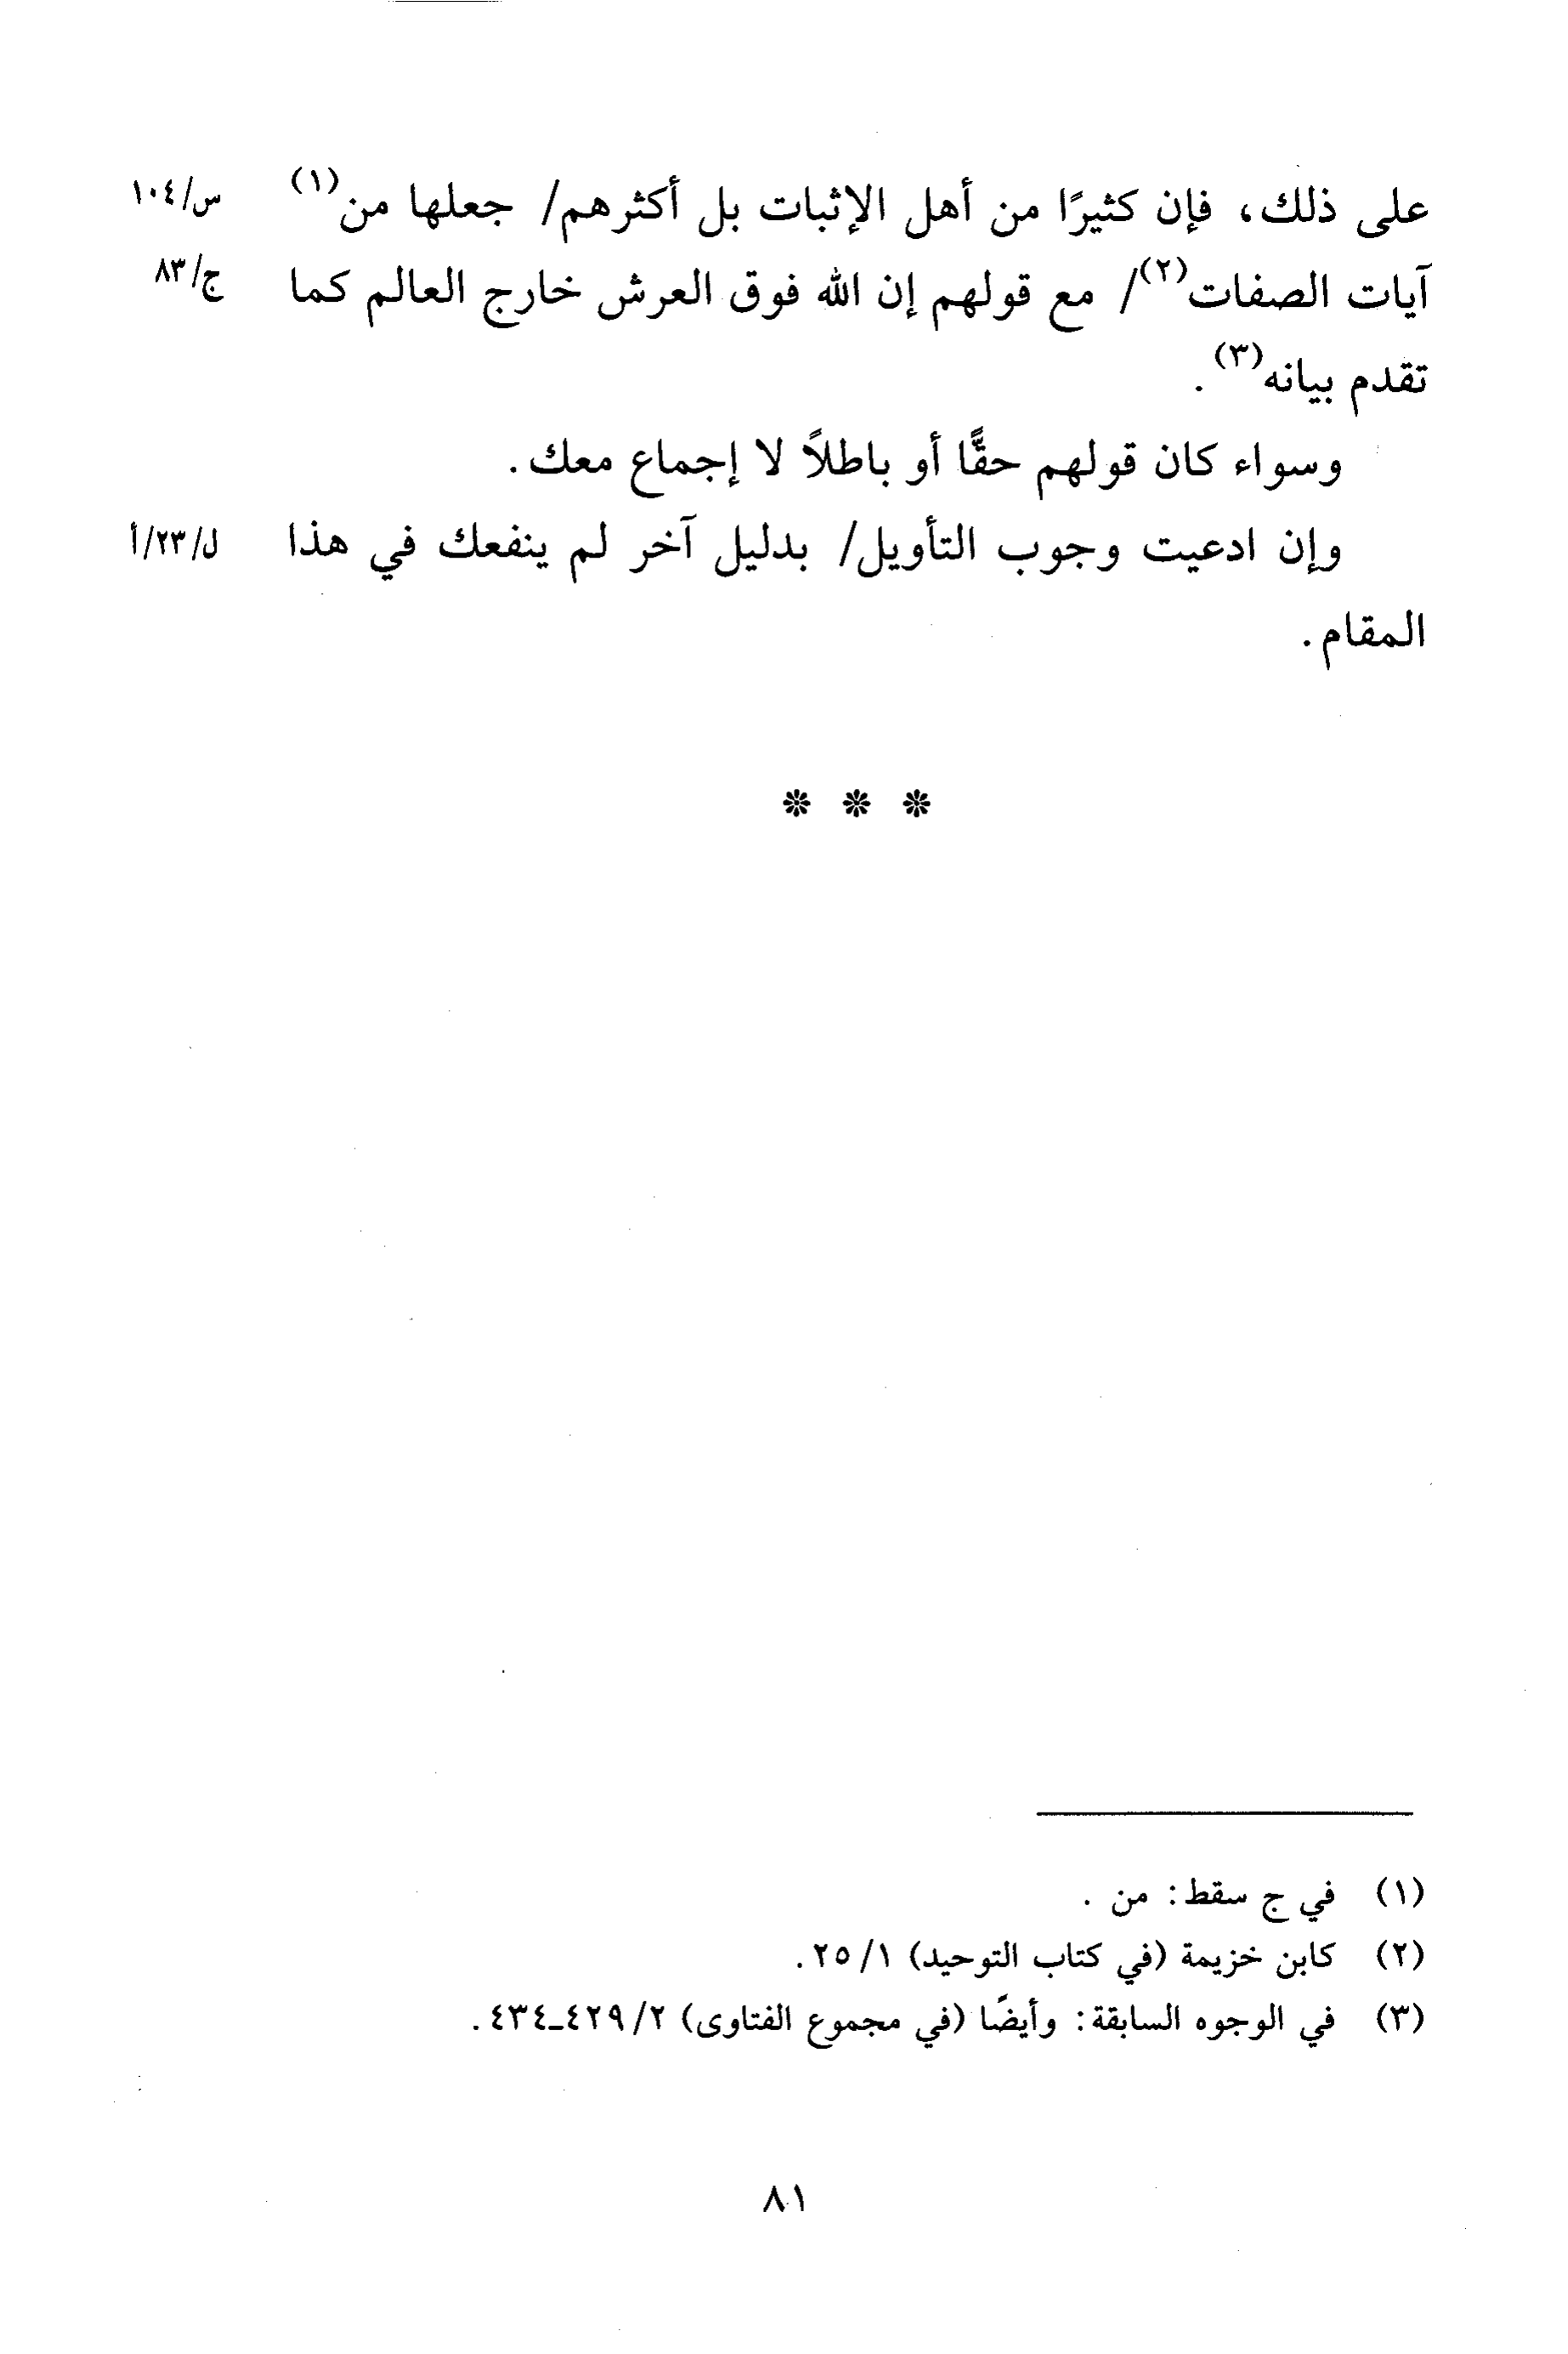 على ذلك، فإن كثيرًا من أهل الإثبات بل أكثرهم/ جعلها من(١) س/١٠٤
آيات الصفات(٢)/ مع قولهم إن الله فوق العرش خارج العالم كما ج/٨٣
تقدم بيانه(٣).
وسواء كان قولهم حقًّا أو باطلاً لا إجماع معك.
وإن ادعيت وجوب التأويل/ بدليل آخر لم ينفعك في هذا ل/٢٣/أ
المقام.
* * *
(١) في ج سقط: من .
(٢) كابن خزيمة (في كتاب التوحيد) ٢٥/١.
(٣) في الوجوه السابقة: وأيضًا (في مجموع الفتاوى) ٤٢٩/٢ـ٤٣٤.
٨١